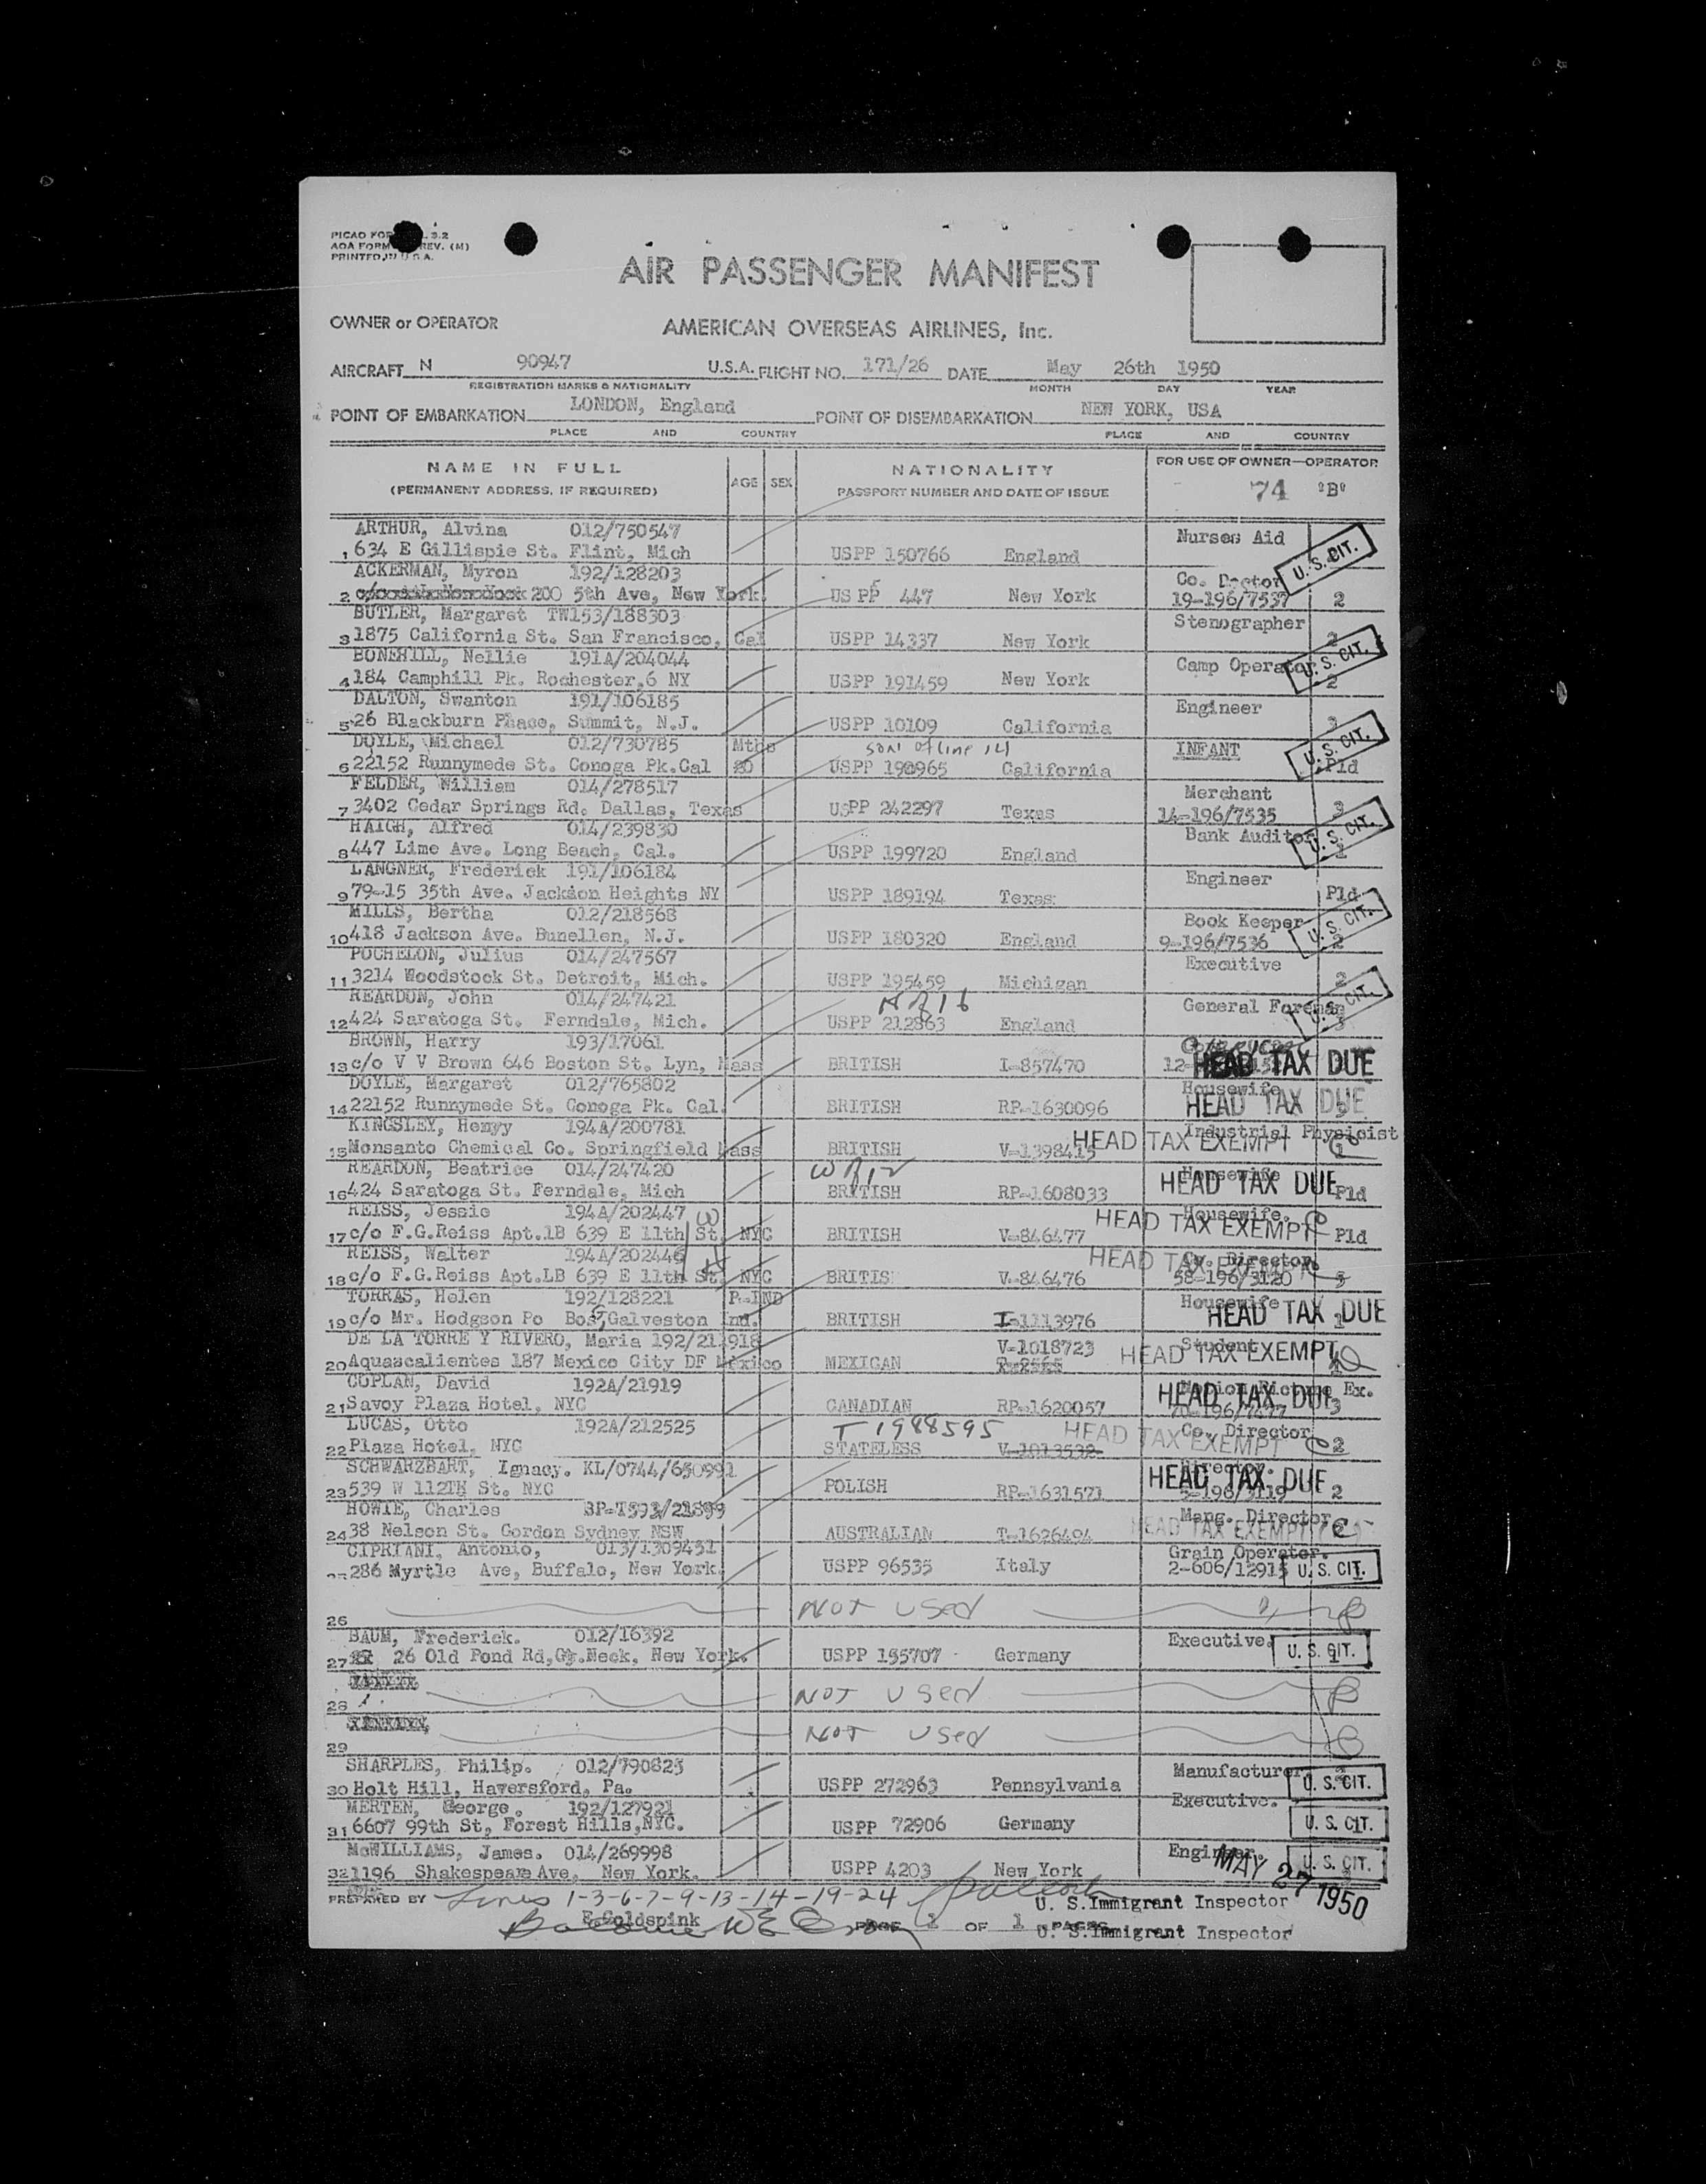 PICAO FOR
AOA FORM REV. (M)
PRINTED IN U.S.A.
AIR PASSENGER MANIFEST
OWNER or OPERATOR AMERICAN OVERSEAS AIRLINES, Inc.
AIRCRAFT N 90947 U.S.A. FLIGHT NO. 171/26 DATE May 26th 1950
REGISTRATION MARKS & NATIONALITY MONTH DAY YEAR
POINT OF EMBARKATION LONDON, England POINT OF DISEMBARKATION NEW YORK, USA
PLACE AND COUNTRY PLACE AND COUNTRY
NAME IN FULL AGE SEX NATIONALITY FOR USE OF OWNER—OPERATOR
(PERMANENT ADDRESS, IF REQUIRED) PASSPORT NUMBER AND DATE OF ISSUE 74 "B"
ARTHUR, Alvina 012/750547 Nurses Aid
1 634 E Gillispie St. Flint, Mich USPP 150766 England U.S. CIT.
ACKERMAN, Myron 192/128203 Co. Doctor
2 200 5th Ave, New York. US PP 447 New York 19-196/7537 2
BUTLER, Margaret TW153/188303 Stenographer
3 1875 California St. San Francisco, Cal USPP 14337 New York 2
BONEHILL, Nellie 191A/204044 Camp Operator U.S. CIT.
4 184 Camphill Pk. Rochester,6 NY USPP 191459 New York 2
DALTON, Swanton 191/106185 Engineer
5 26 Blackburn Phace, Summit, N.J. USPP 10109 California
DOYLE, Michael 012/730785 Mths son of line 14 INFANT U.S. CIT.
6 22152 Runnymede St. Conoga Pk.Cal 20 USPP 190965 California Pld
FELDER, William 014/278517 Merchant
7 3402 Cedar Springs Rd. Dallas, Texas USPP 242297 Texas 14-196/7535 3
HAIGH, Alfred 014/239830 Bank Auditor U.S. CIT.
8 447 Lime Ave. Long Beach, Cal. USPP 199720 England 1
LANGNER, Frederick 191/106184 Engineer
9 79-15 35th Ave. Jackson Heights NY USPP 189194 Texas Pld
MILLS, Bertha 012/218568 Book Keeper U.S. CIT.
10 418 Jackson Ave. Bunellen, N.J. USPP 180320 England 9-196/7536 2
POCHELON, Julius 014/247567 Executive
11 3214 Woodstock St. Detroit, Mich. USPP 195459 Michigan 2
REARDON, John 014/247421 H of 16 General Foreman U.S. CIT.
12 424 Saratoga St. Ferndale, Mich. USPP 212863 England 3
BROWN, Harry 193/17061
13 c/o V V Brown 646 Boston St. Lyn, Mass BRITISH I-857470 HEAD TAX DUE
DOYLE, Margaret 012/765802 Housewife
14 22152 Runnymede St. Conoga Pk. Cal. BRITISH RP-1630096 HEAD TAX DUE
KINGSLEY, Henyy 194A/200781 Industrial Physicist
15 Monsanto Chemical Co. Springfield Mass BRITISH V-1398415 HEAD TAX EXEMPT
REARDON, Beatrice 014/247420 W of 12 Housewife
16 424 Saratoga St. Ferndale, Mich BRITISH RP-1608033 HEAD TAX DUE Pld
REISS, Jessie 194A/202447 W Housewife.
17 c/o F.G.Reiss Apt.1B 639 E 11th St. NYC BRITISH V-846477 HEAD TAX EXEMPT Pld
REISS, Walter 194A/202446 H Co. Director
18 c/o F.G.Reiss Apt.LB 639 E 11th St. NYC BRITIS V-846476 HEAD TAX EXEMPT 58-196/3120
TORRAS, Helen 192/128221 P-IND Housewife
19 c/o Mr. Hodgson Po Box, Galveston Ind. BRITISH I-1113976 HEAD TAX DUE 1
DE LA TORRE Y RIVERO, Maria 192/211918 V-1018723 Student
20 Aquascalientes 187 Mexico City DF Mexico MEXICAN HEAD TAX EXEMPT
COPLAN, David 192A/21919 Motion Picture Ex.
21 Savoy Plaza Hotel, NYC CANADIAN RP-1620057 HEAD TAX DUE 3
LUCAS, Otto 192A/212525 T 1988595 Co. Director
22 Plaza Hotel, NYC STATELESS V-1013532 HEAD TAX EXEMPT 2
SCHWARZBART, Ignacy. KL/0744/650991 Director.
23 539 W 112TH St. NYC POLISH RP-1631571 HEAD TAX DUE 5-196/3119 2
HOWIE, Charles SP-T593/21899 Mang. Director
24 38 Nelson St. Gordon Sydney NSW AUSTRALIAN T-1626494 HEAD TAX EXEMPT
CIPRIANI, Antonio, 013/1309451 Grain Operator.
286 Myrtle Ave, Buffalo, New York. USPP 96535 Italy 2-606/12915 U.S. CIT.
26 NOT USED
BAUM, Frederick. 012/16392 Executive.
27 26 Old Pond Rd,Gt.Neck, New York. USPP 155707 Germany U.S. CIT.
28 NOT USED
29 NOT USED
SHARPLES, Philip. 012/790825 Manufacturer.
30 Holt Hill, Haversford, Pa. USPP 272963 Pennsylvania U.S. CIT.
MERTEN, George. 192/127921 Executive.
31 6607 99th St, Forest Hills,NYC. USPP 72906 Germany U.S. CIT.
McWILLIAMS, James. 014/269998 Engineer.
32 1196 Shakespeare Ave, New York. USPP 4203 New York U.S. CIT.
MAY 27 1950
PREPARED BY Lines 1-3-6-7-9-13-14-19-24 U. S. Immigrant Inspector
E.Goldspink PAGE 1 OF 1 PAGES U. S. Immigrant Inspector